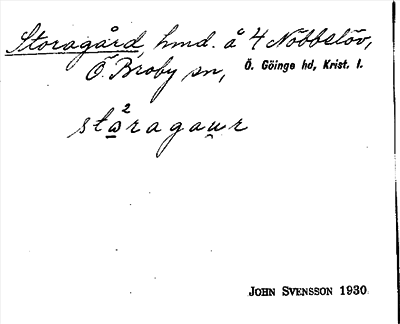 Storagård, hmd. å 4 Nöbbelöv,
Ö. Broby sn, Ö. Göinge hd, Krist. l.
stå²ragau̯r
JOHN SVENSSON 1930